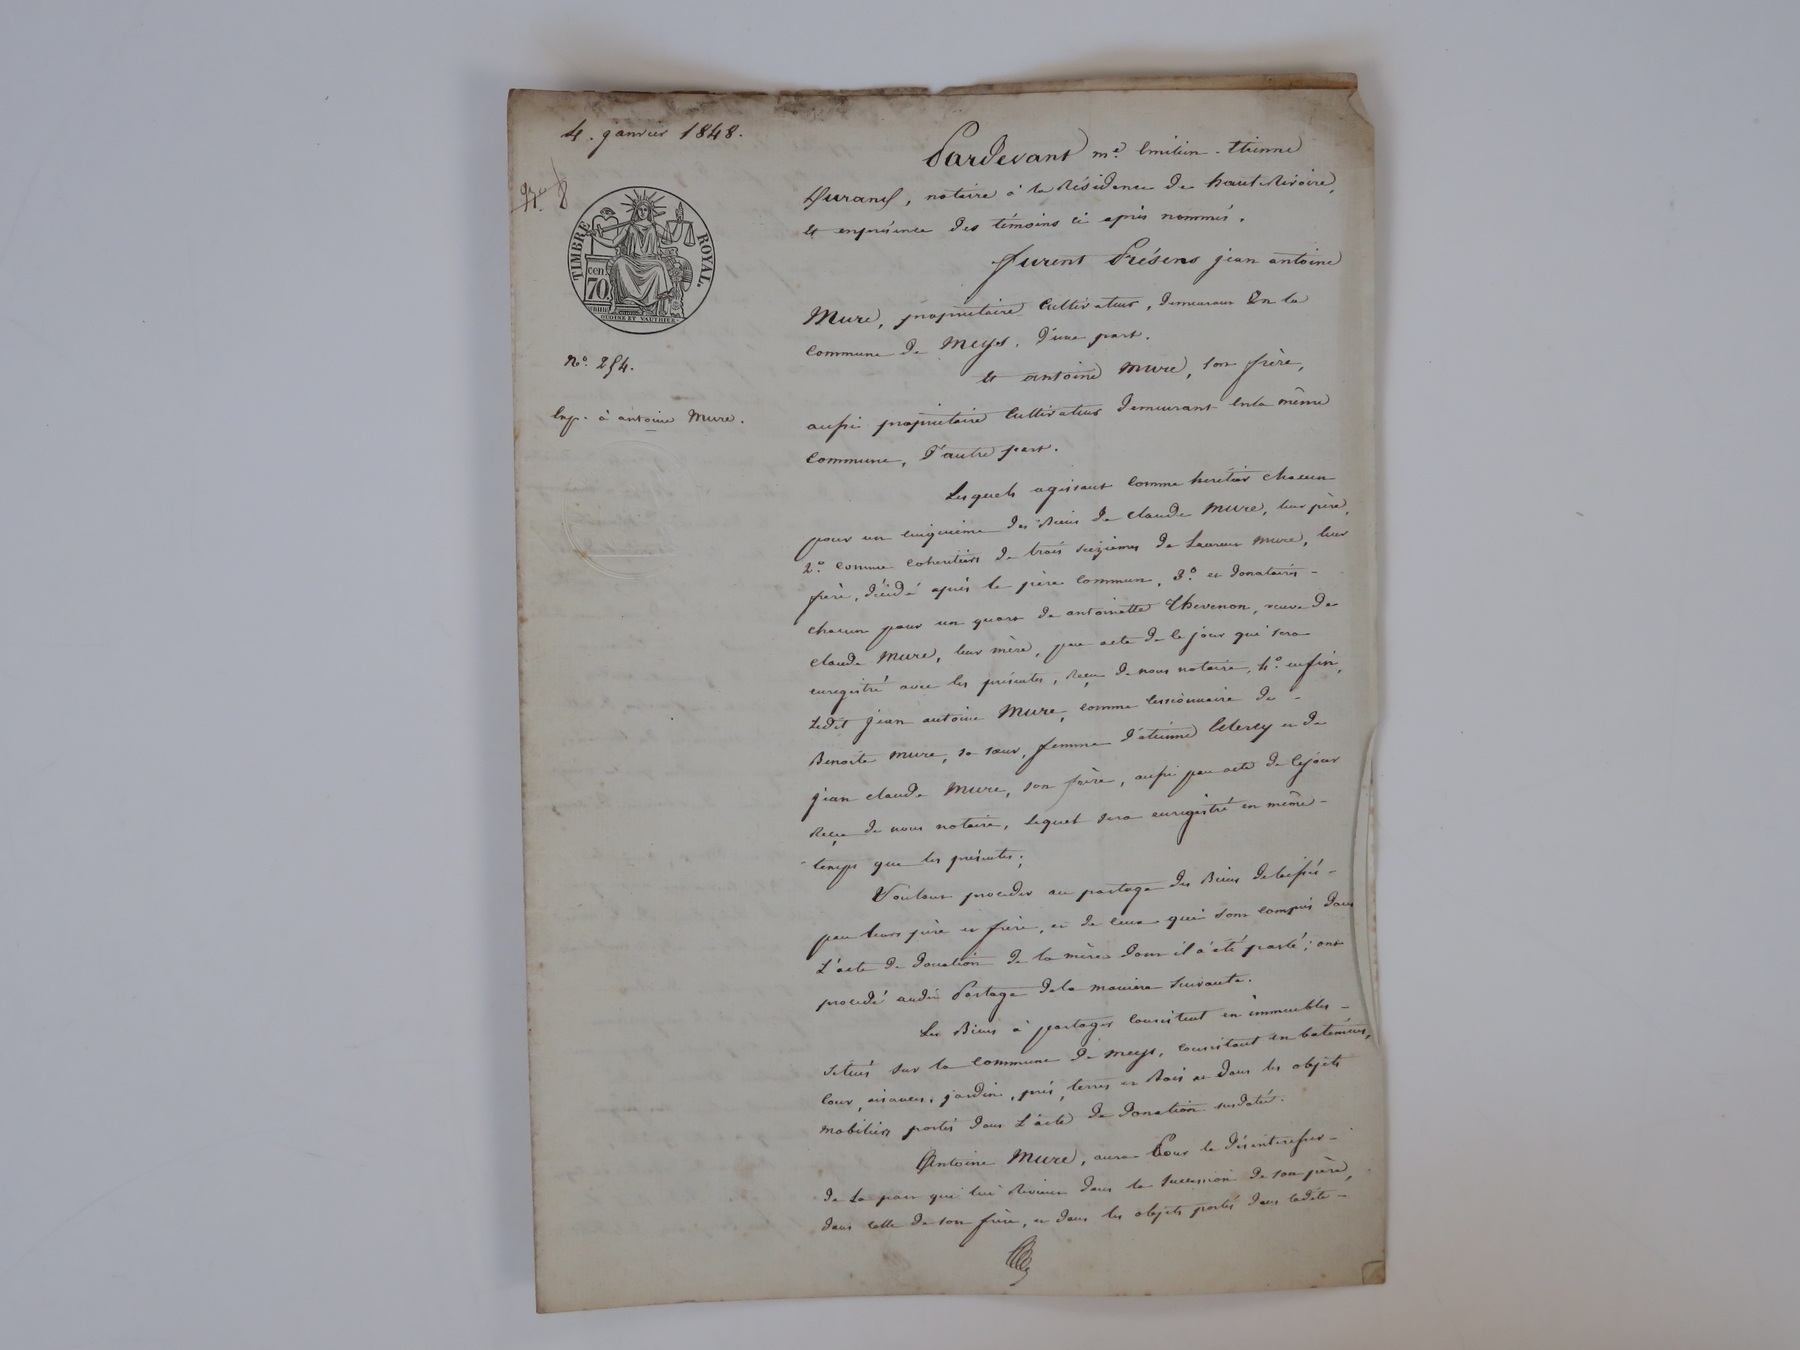 4. janvier 1848.
TIMBRE ROYAL.
cen
70
OUDINE ET VAUTHIER
N.° 254.
Exp. à antoine Mure.
Pardevant m.e Emilien-Etienne
Durand, notaire à la Résidence de haut-Rivoire,
et enprésence des témoins ci après nommés.
furent Présens jean antoine
Mure, propriétaire Cultivateur, demeurant En la
Commune de Meys. D'une part.
et antoine Mure, son frère,
aussi propriétaire Cultivateur demeurant Enla même
Commune, D'autre part.
Lesquels agissant Comme heritier chacun
pour un cinquième des Biens de Claude Mure, leur père,
2.° comme coheritiers de trois seizièmes de Laurent Mure, leur
frère, décédé après le père commun, 3.° et donataires-
chacun pour un quart de antoinette Thevenon, veuve de
Claude Mure, leur mère, par acte de ce jour qui sera
enregistré avec les présentes, Reçu de nous notaire, 4.° enfin,
Ledit jean antoine Mure, comme cessionnaire de-
Benoite Mure, sa sœur, femme d'étienne et de
jean claude Mure, son frère, aussi par acte de cejour
Reçu de nous notaire, Lequel sera enregistré en même-
temps que les présentes;
Voulant proceder au partage des Biens delaissés-
par leurs père et frère, et de ceux qui sont compris dans
L'acte de donation de la mère dont il a été parlé; ont
procédé audit Partage dela manière suivante.
Les Biens à partager Consistent en immeubles-
situés sur la Commune de Meys, consistant en batiments,
Cour, aisances, jardin, prés, terres et Bois et dans les objets
mobiliers portés dans L'acte de donation susdaté.
Antoine Mure, aura Pour le désintéresser-
de La part qui lui Revient dans la succession de son père,
dans celle de son frère, et dans les objets portés dans ladite-